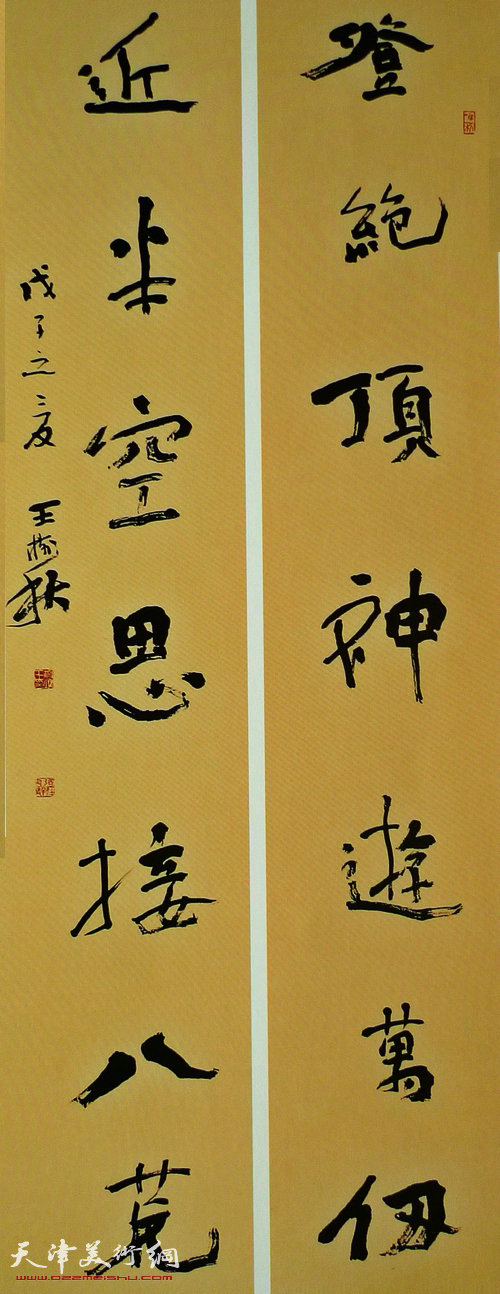 登絶頂神遊萬仞
近半空思接八荒
戊子之夏 王樹秋
天津美術網
www.022meishu.com